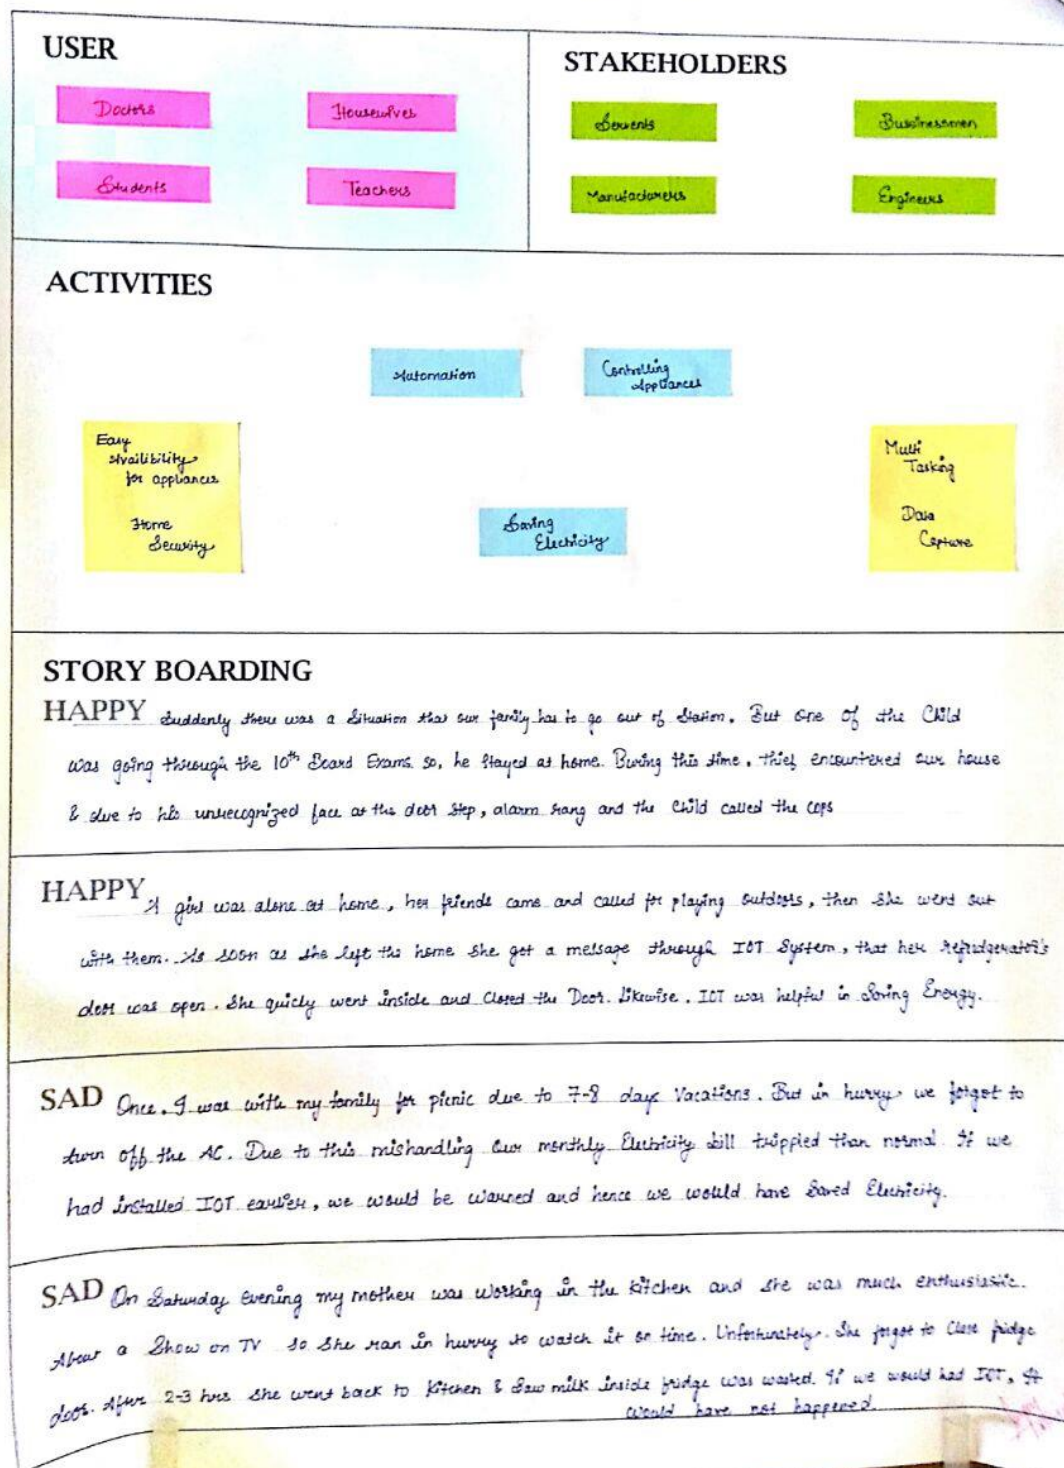 USER
Doctors
Housewives
Students
Teachers
STAKEHOLDERS
Servents
Bussinessmen
Manufacturers
Engineers
ACTIVITIES
Automation
Controlling
Appliances
Easy
Availibility
for appliances
Home
Security
Saving
Electricity
Multi
Tasking
Data
Capture
STORY BOARDING
HAPPY Suddenly there was a Situation that our family has to go out of Station. But one of the Child
was going through the 10th Board Exams. so, he Stayed at home. During this time, thief encountered our house
& due to his unrecognized face at the door step, alarm rang and the Child called the cops
HAPPY A girl was alone at home, her friends came and called for playing outdoors, then She went out
with them. As soon as she left the home She got a message through IOT System, that her Refridgerator's
door was open. She quicly went inside and Closed the Door. Likewise, IOT was helpful in Saving Energy.
SAD Once, I was with my family for picnic due to 7-8 days Vacations. But in hurry we forgot to
turn off the AC. Due to this mishandling Our monthly Electricity bill trippled than normal. If we
had installed IOT earlier, we would be warned and hence we would have Saved Electricity.
SAD On Saturday evening my mother was working in the kitchen and she was much enthusiastic.
About a Show on TV so She ran in hurry to watch it on time. Unfortunately, She forgot to Close fridge
door. After 2-3 hrs She went back to Kitchen & Saw milk inside fridge was wasted. If we would had IOT, It
would have not happened.